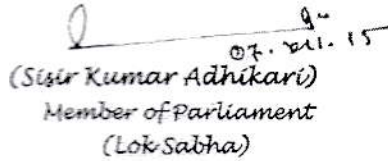 07. XII. 15
(Sisir Kumar Adhikari)
Member of Parliament
(Lok Sabha)